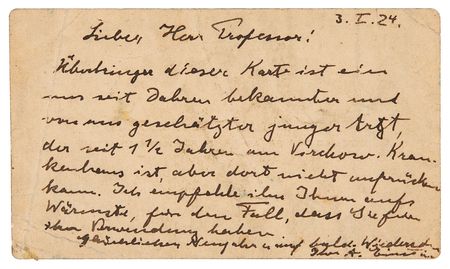 3. I. 24.
Lieber Herr Professor!
Überbringer dieser Karte ist ein
uns seit Jahren bekannter und
von uns geschätzter junger Arzt,
der seit 1 ½ Jahren am Virchow-Kran-
kenhaus ist, aber dort nicht aufrücken
kann. Ich empfehle ihn Ihnen aufs
Wärmste, für den Fall, dass Sie für
ihn Verwendung haben.
Neujahr und Wiedersehen
Ihr A. Einstein